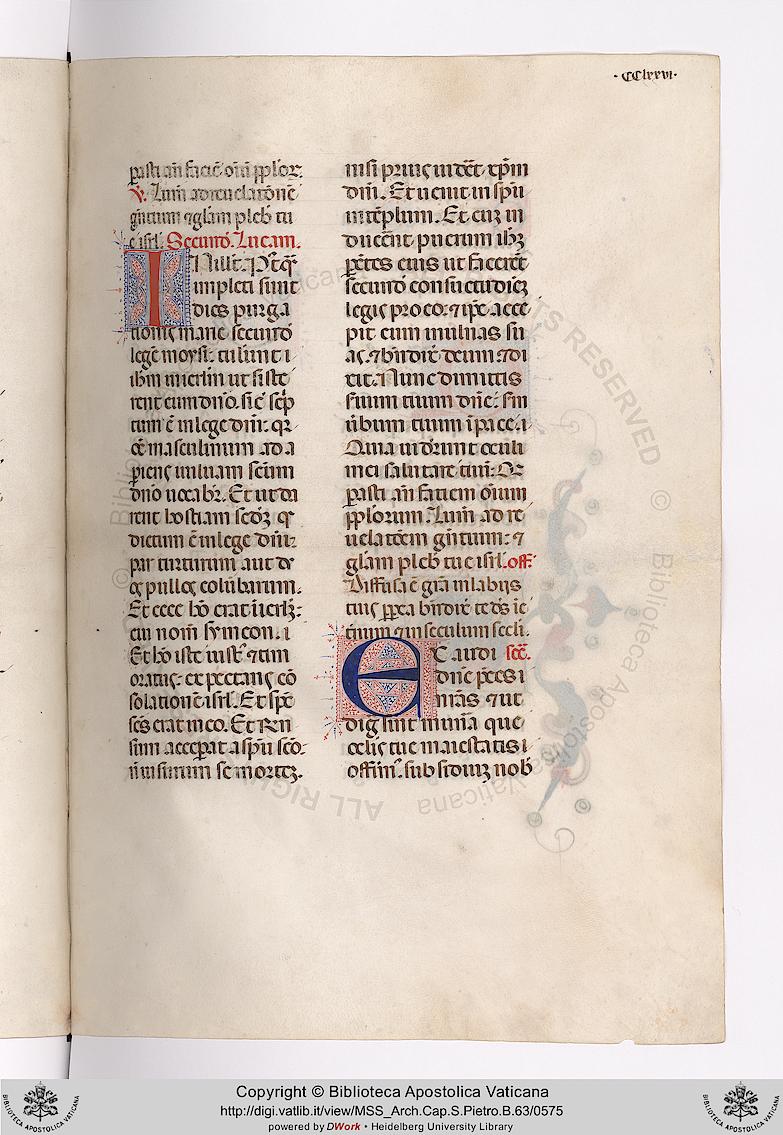 ·CClxxvi·
parasti añ faciē oīm pplor̄.
℣. Lum̄ ad reuelatōnē
gentium ⁊ glām pleb̄ tu
e isrl̄. Secund̄. Lucam.
IN illo t̄. Postq̄
impleti sunt
dies purga
tionis marie secundō
legē moysi: tulerunt i
ihm̄ in ierlm̄ ut siste
rent eum dn̄o. sic̄ sc̄p
tum ē in lege dn̄i: qr̄
oē masculinum ad a
periens uuluam sc̄um
dn̄o uocabr̄. Et ut da
rent hostiam sc̄dz q
dictum ē in lege dn̄i:
par turturum aut du
os pullos colūbarum.
Et ecce hō erat ī ierlz̄:
cui nom̄ symeon. i
Et hō iste iustꝰ ⁊ tim
oratus: expectans cō
solationē isrl̄. Et spc̄
sc̄s erat in eo. Et respon
sum acceperat a spū sc̄o:
nō uisurum se mortez.
nisi prius uidēt xp̄m
dn̄i. Et uenit in sp̄u
in tēplum. Et cuz in
ducerent puerum ihz̄
parētes eius ut facerēt
secundō consuetudiez
legis pro eo. ⁊ ip̄e acce
pit eum in ulnas su
as. ⁊ bn̄dix̄ deum ⁊ di
xit. Nunc dimittis
seruum tuum dn̄e: sm
uerbum tuum ī pace. i
Quia uiderunt oculi
mei salutare tuū: Qd̄
parasti añ faciem oīum
pplorum. Lum̄ ad re
uelatōem gn̄tium: ⁊
glām pleb̄ tue isrl̄. off̄.
Diffusa ē grā in labijs
tuis pp̄ea bn̄dix̄ te ds̄ ī e
ternum ⁊ in seculum secli.
Exaudi sec̄.
dn̄e p̄ces
nr̄as ⁊ ut
dig sint munīa que
oclis tue maiestatis i
offerim⁹. subsidiuz nob̄
Copyright © Biblioteca Apostolica Vaticana
http://digi.vatlib.it/view/MSS_Arch.Cap.S.Pietro.B.63/0575
powered by DWork • Heidelberg University Library
BIBLIOTECA APOSTOLICA VATICANA
BIBLIOTECA APOSTOLICA VATICANA